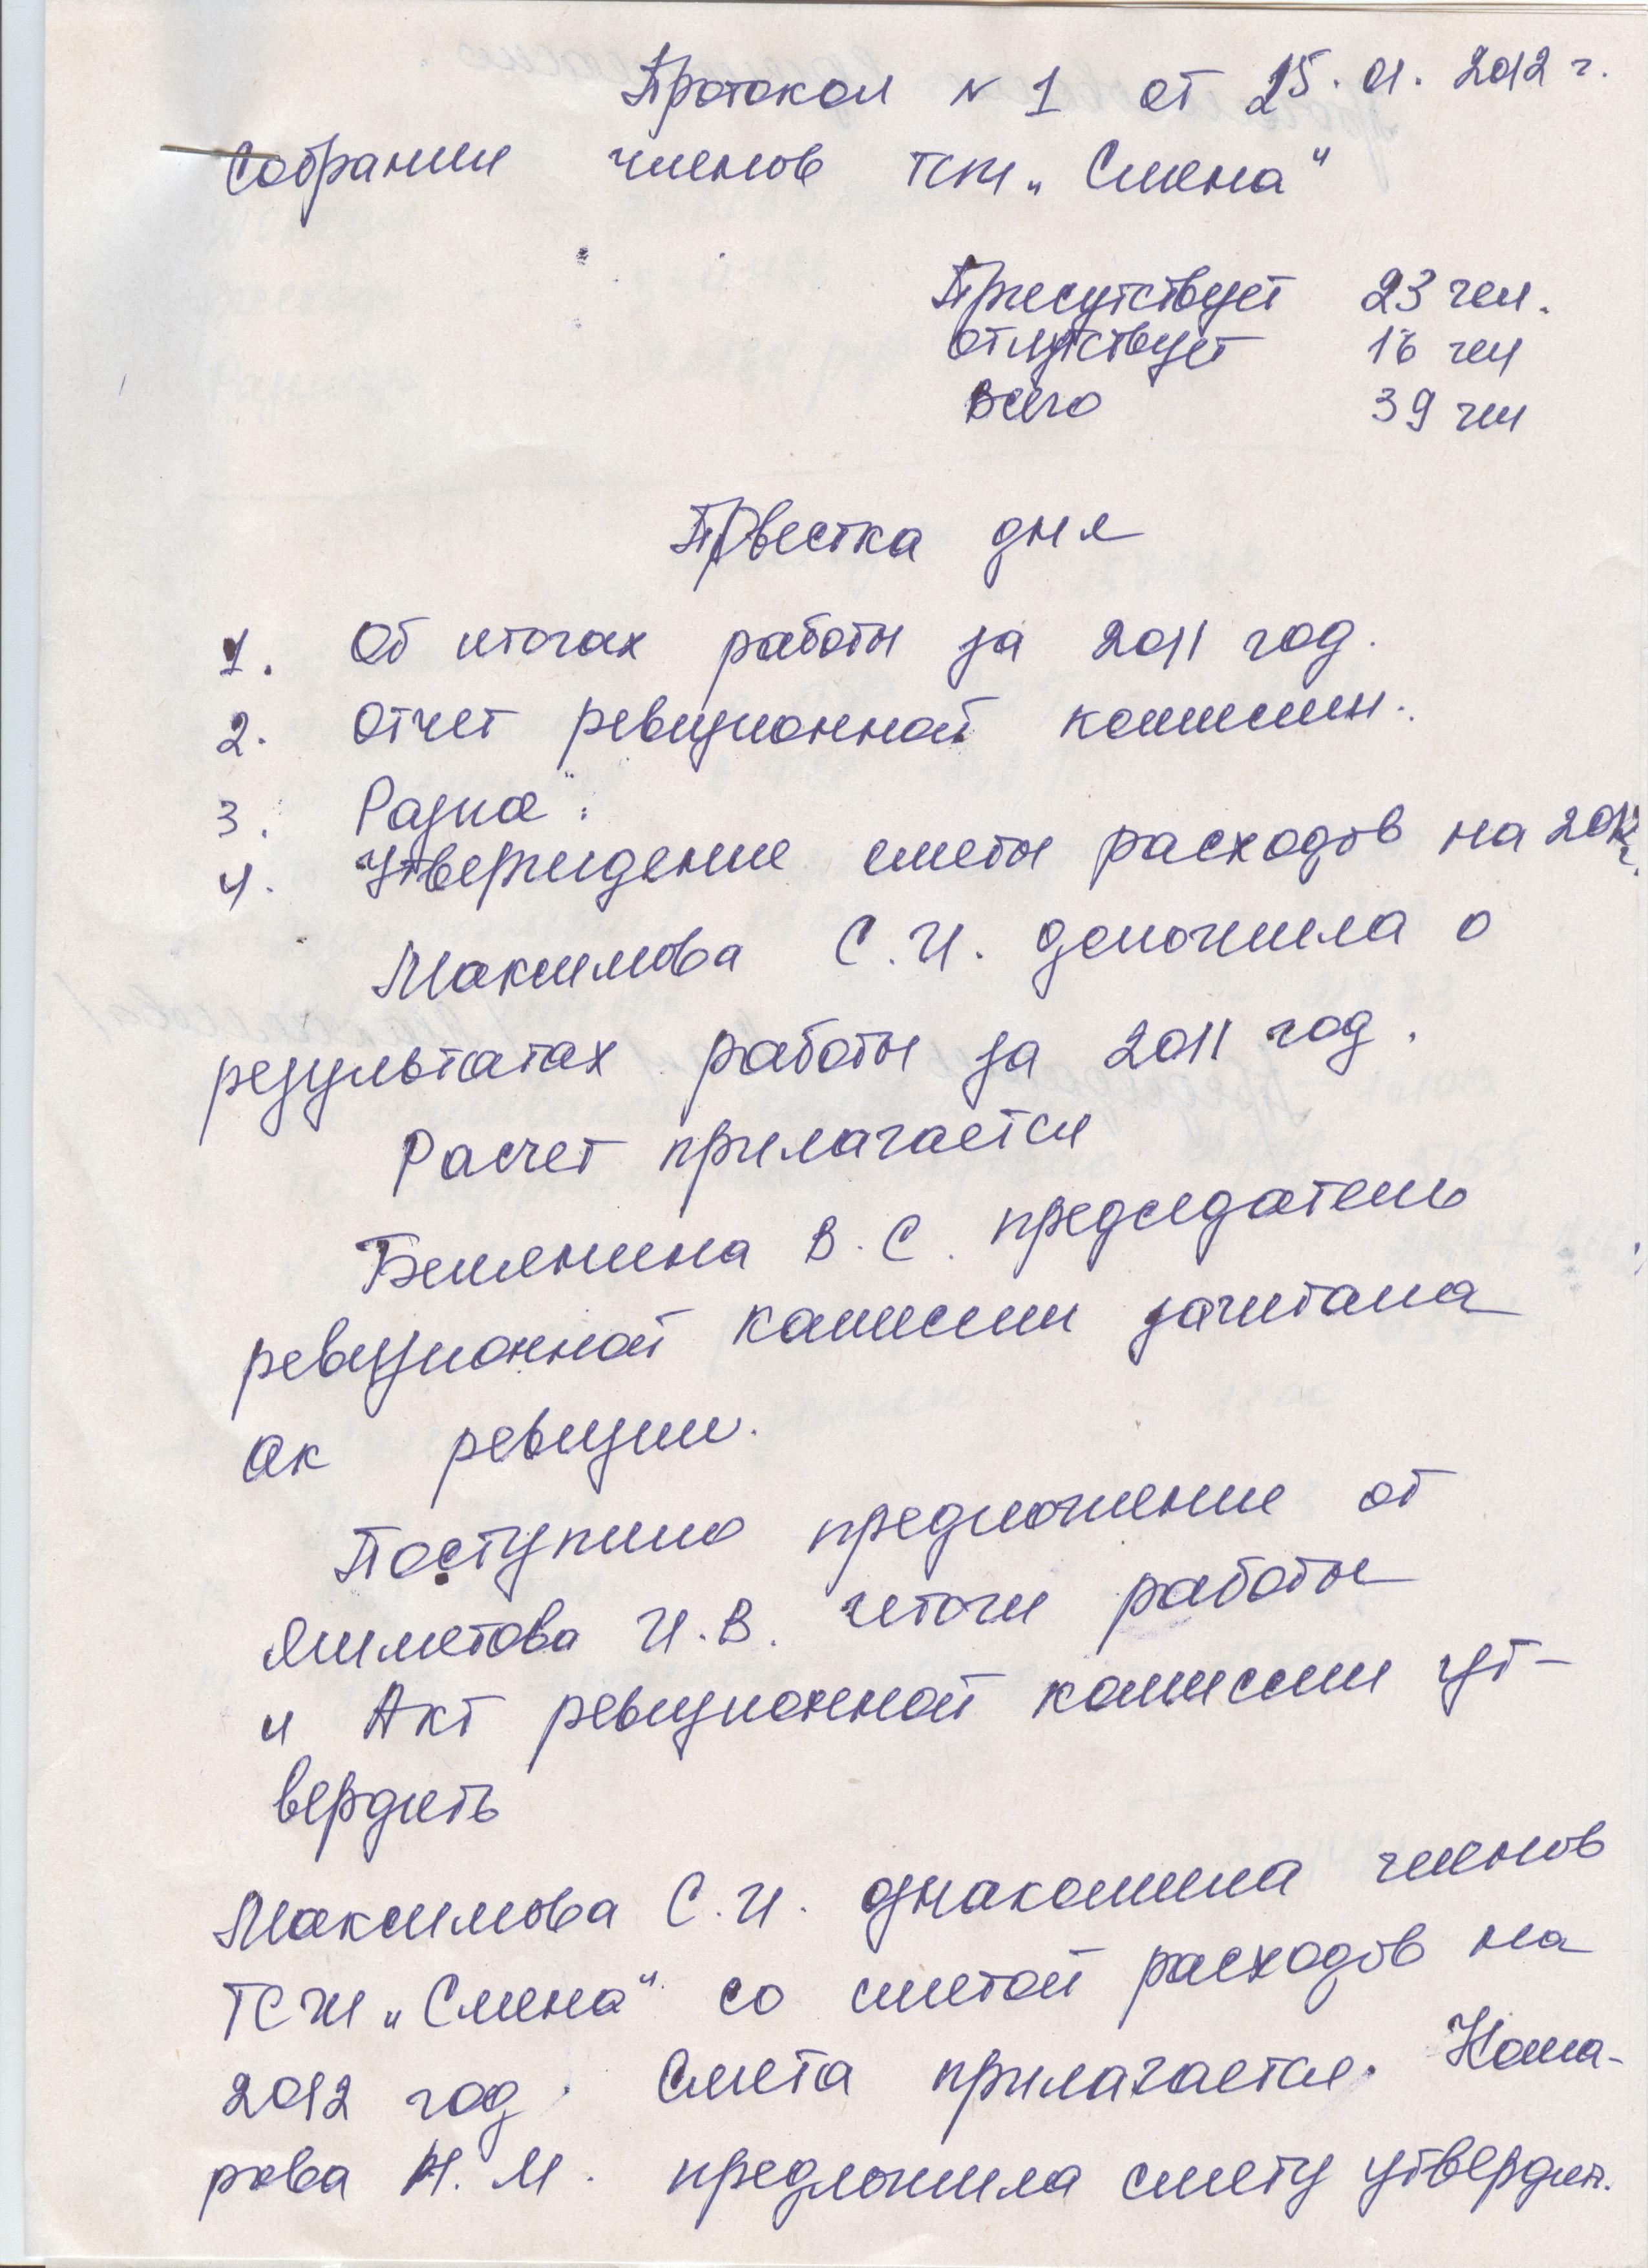 Протокол N 1 от 25.01.2012 г.
собрания членов ТСЖ „Смена"
Присутствует 23 чел.
отсутствует 16 чел
всего 39 чел
Повестка дня
1. Об итогах работы за 2011 год.
2. Отчет ревизионной комиссии.
3. Разное.
4. Утверждение сметы расходов на 2012 г.
Максимова С.И. доложила о
результатах работы за 2011 год.
Расчет прилагается
В.С. председатель
ревизионной комиссии зачитала
ак ревизии.
Поступило предложение от
Яшметова И.В. итоги работы
и Акт ревизионной комиссии ут-
вердить
Максимова С.И. ознакомила членов
ТСЖ „Смена" со сметой расходов на
2012 год. Смета прилагается.
Н.М. предложила смету утвердить.